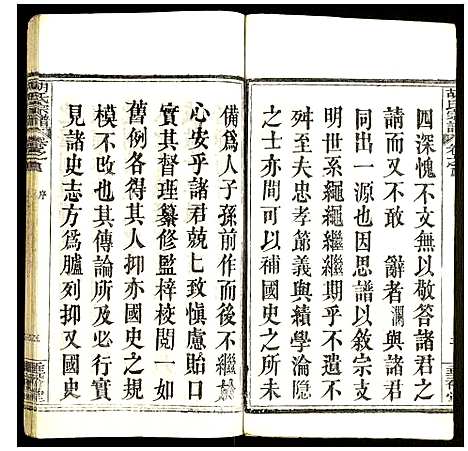 胡氏宗譜
卷之首
四深愧不文無以敬答諸君之
請而又不敢 辭者瀾與諸君
同出一源也因思譜以敘宗支
明世系繩繩繼繼期乎不遺不
舛至夫忠孝節義與績學淪隱
之士亦間可以補國史之所未
備爲人子孫前作而後不繼於
心安乎諸君兢七致慎慮貽口
實其督理纂修監梓校閱一如
舊例各得其人抑亦國史之規
模不攺也其傳論所及必行實
見諸史志方爲臚列抑又國史
胡氏宗譜
卷之首
序